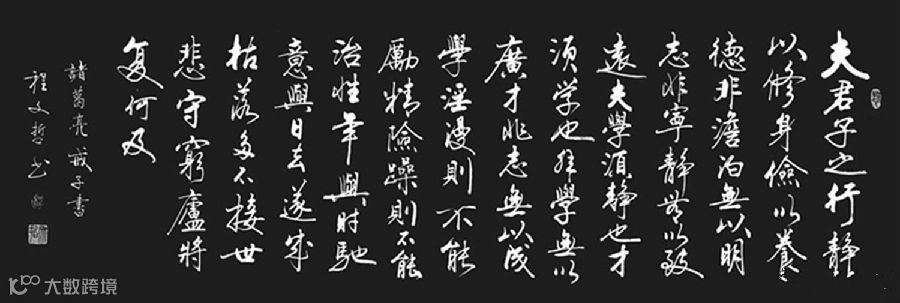 夫君子之行静
以修身儉以養
德非澹泊無以明
志非寧静無以致
遠夫學須静也才
須学也非學無以
廣才非志無以成
學淫漫則不能
勵精險躁則不能
治性年與时馳
意與日去遂成
枯落多不接世
悲守窮廬將
复何及
諸葛亮戒子書
程文哲书
大数跨境